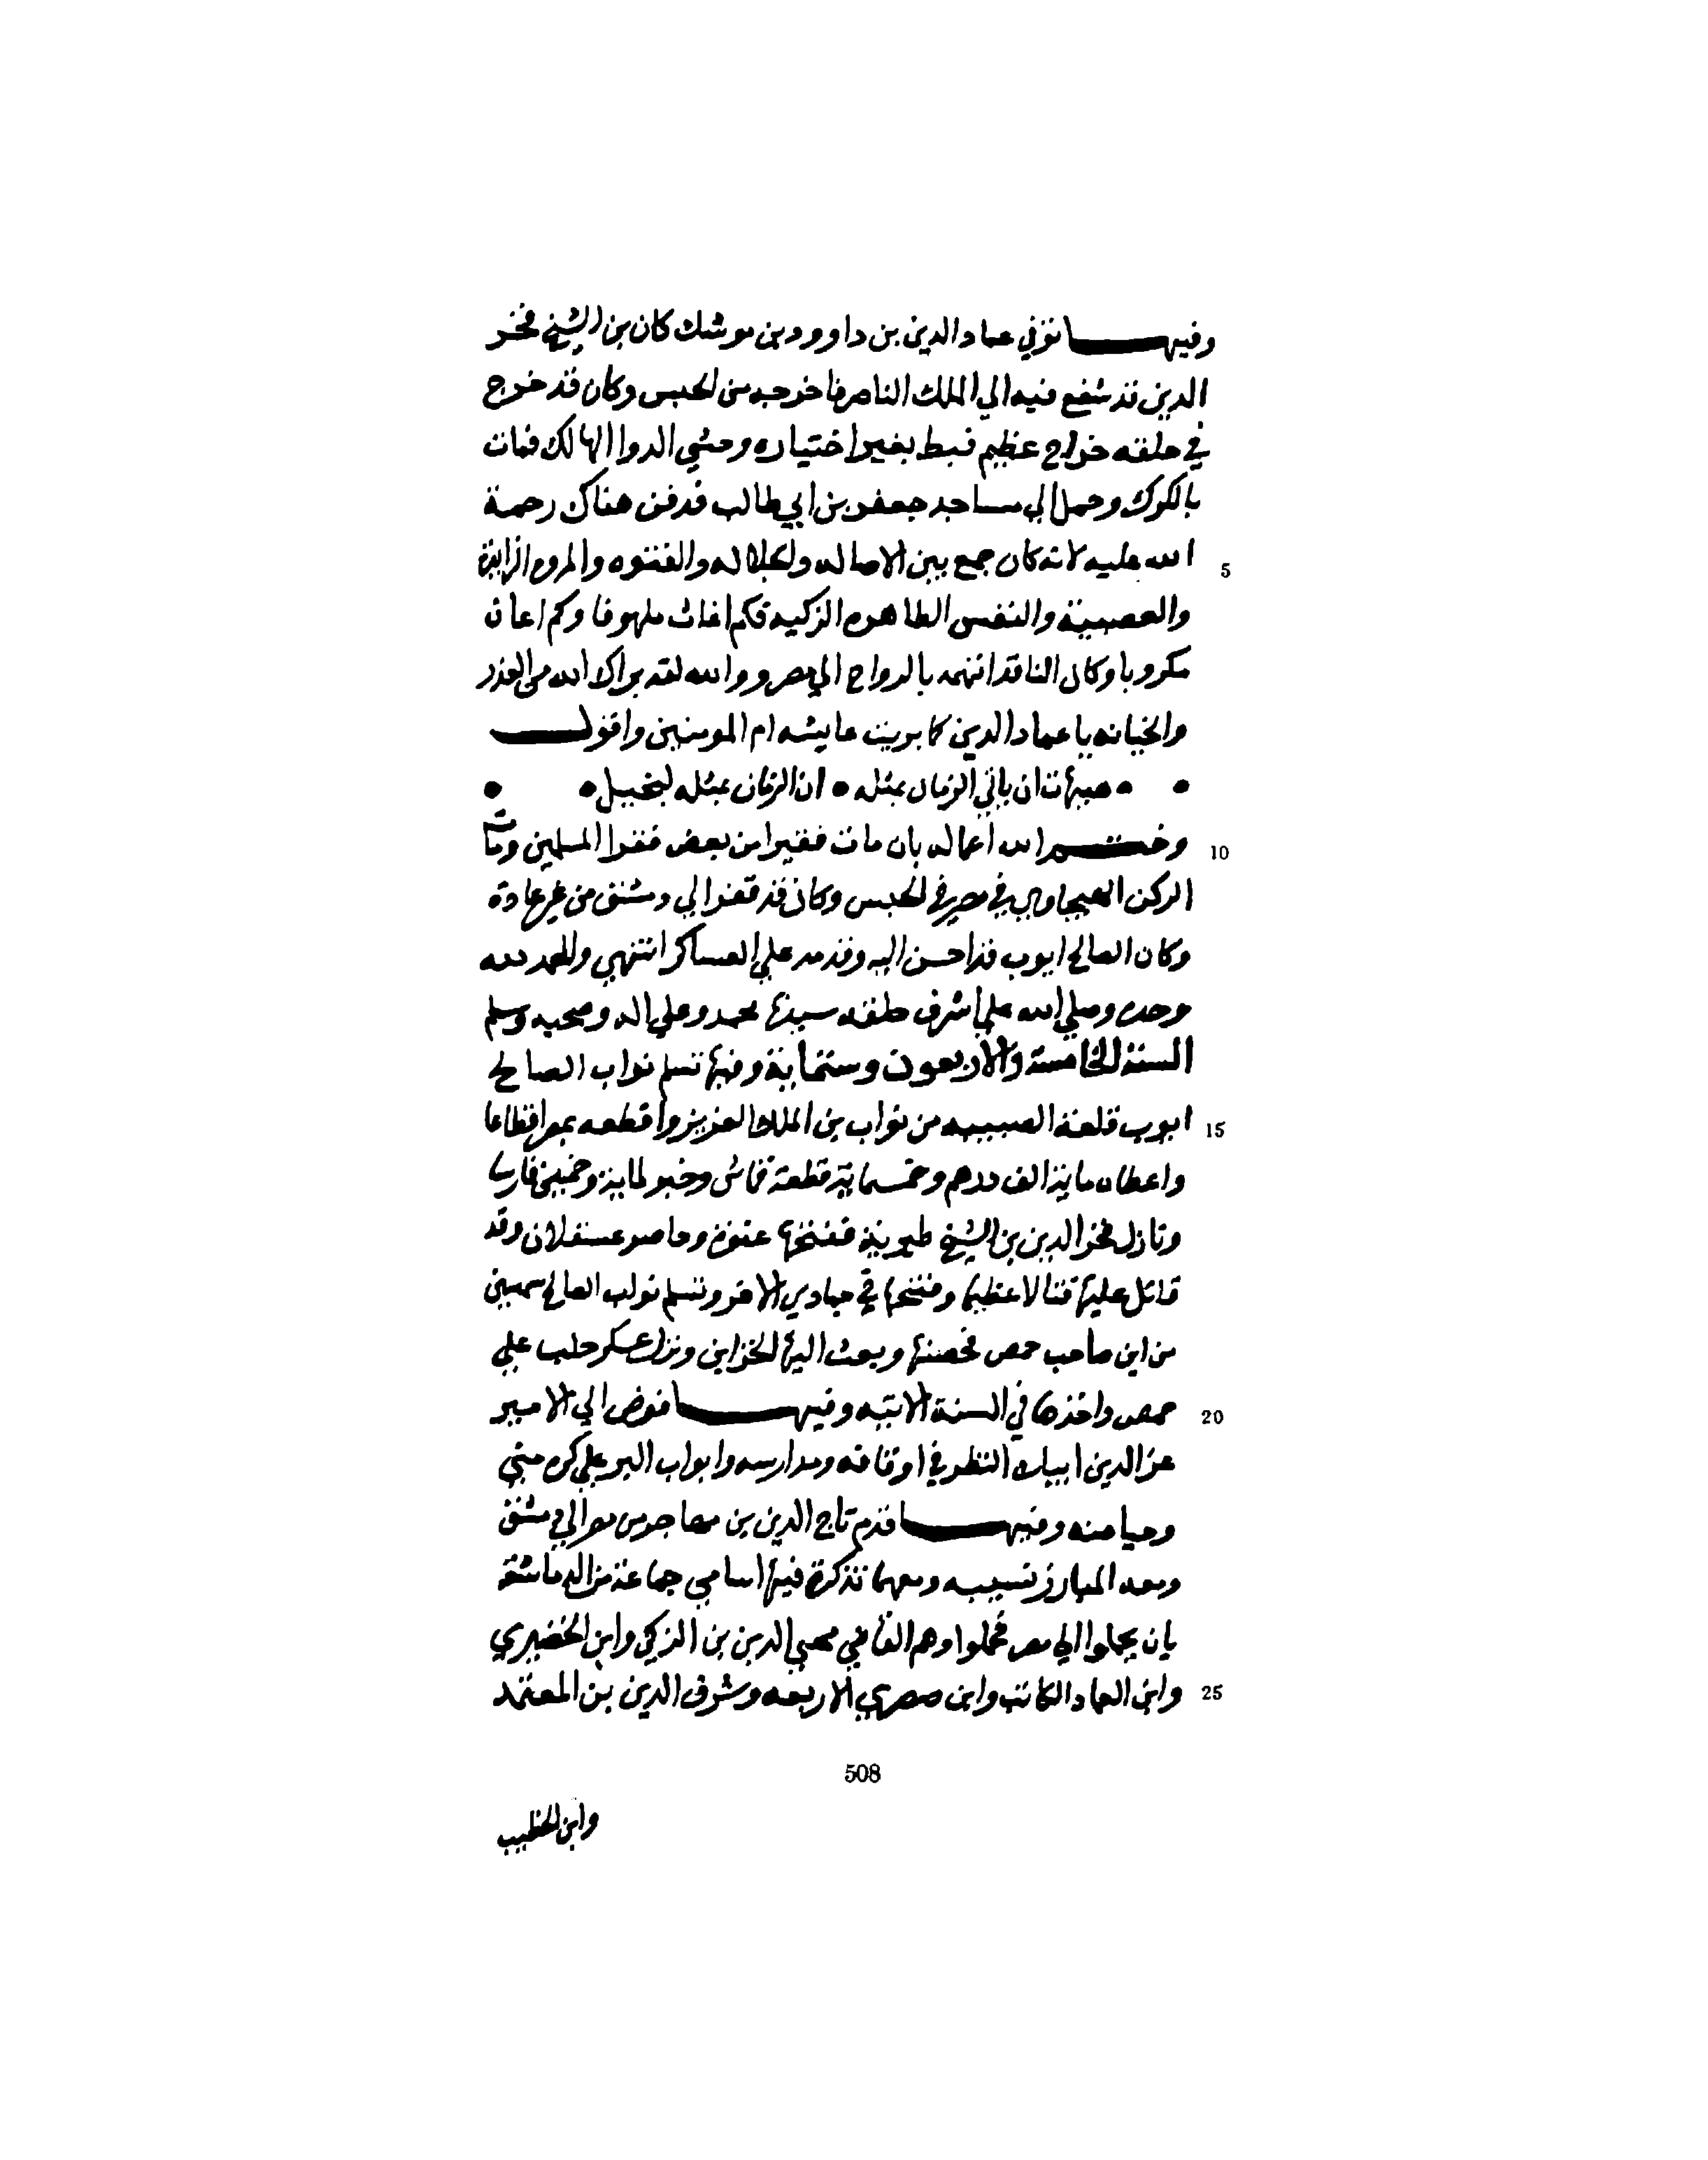 وفيها توفي عماد الدين بن داوود بن موشك كان بن الشيخ فخر
الدين قد شفع فيه الي الملك الناصر فاخرجه من الحبس وكان قد خرج
في حلقه خراج عظيم فبط بغير اختياره وحشي الدوا الهالك فمات
بالكرك وحمل الي مساجد جعفر بن ابي طالب فدفن هناك رحمة
5 الله عليه لانه كان جمع بين الاصاله والجلاله والفتوه والمروه الزايدة
والعصبية والنفس الطاهره الزكيه فكم اغاث ملهوفا وكم اعان
مكروبا وكان الناقد اتهمه بالرواح الي مصر ووالله لقد براك الله من الغدر
والخيانه يا عماد الدين كما بريت عايشه ام المومنين واقول
هيهات ان ياتي الزمان بمثله • ان الزمان بمثله لبخيل
10 وختم الله اعماله بان مات فقيرا من بعض فقرا المسلمين ومات
الركن الهيجاوي في مصر في الحبس وكان قد قفز الي دمشق من غير عادة
وكان الصالح ايوب قد احسن اليه وقدمه علي العساكر انتهي والحمد لله
وحده وصلي الله علي اشرف خلقه سيدنا محمد وعلي اله وصحبه وسلم
السنة الخامسة والاربعون وستماية وفيها تسلم نواب الصالح
15 ايوب قلعة الصبيبه من نواب بن الملك العزيز واقطعه بمصر اقطاعا
واعطاه ماية الف درهم وخمسماية قطعة قماش وخبز لماية وخمسين فارسا
ونازل فخر الدين بن الشيخ طبرية ففتحها عنوة وحاصر عسقلان وقد
قاتل عليها قتالا عظيما وفتحها في جمادي الاخر وتسلم نواب الصالح سميس
من ابن صاحب حمص فحصنها وبعث اليها الخزاين ونزل عسكر حلب علي
20 حمص واخذها في السنة الاتيه وفيها فوض الي الامير
عز الدين ايبك النظر في اوقافه ومدارسه وابواب البر علي كره مني
وحيا منه وفيها قدم تاج الدين بن مهاجر من مصر الي دمشق
ومعه المبارز نسيبه ومعهما تذكرة فيها اسامي جماعة من الدماشقة
بان يحملوا الي مصر فحملوا وهم القاضي محيي الدين بن الزكي وابن الحضيري
25 وابن العماد الكاتب وابن صصري الاربعه وشرف الدين بن المعتمد
508
وابن الخطيب